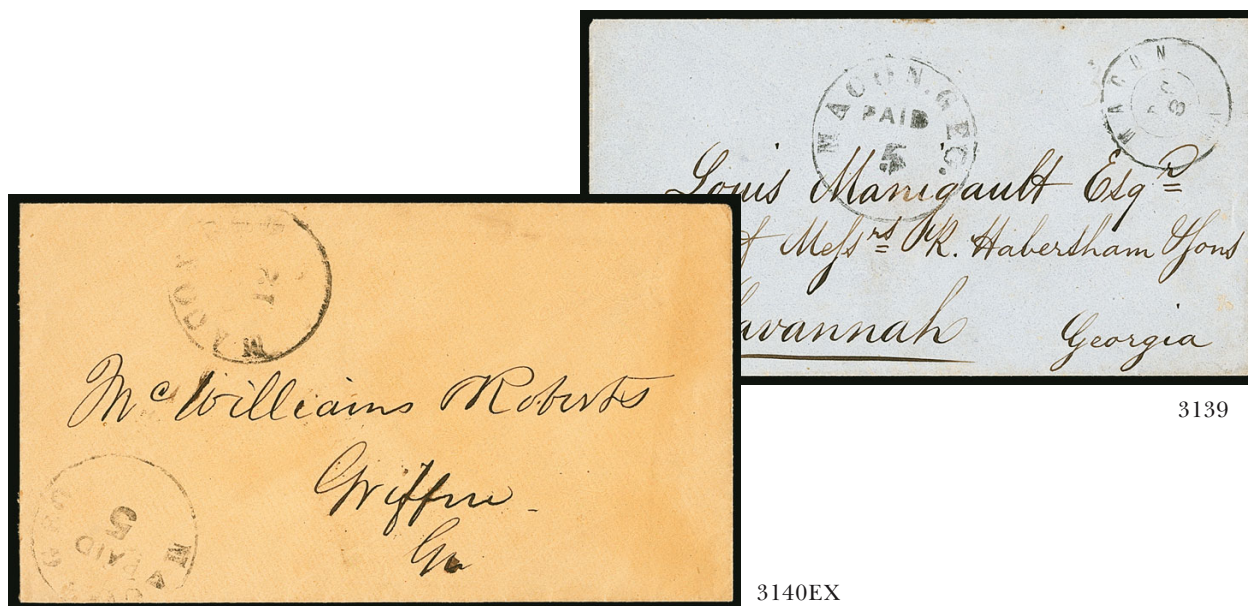 MACON, GEO.
PAID
5
MACON
8
Louis Manigault Esqr
Messrs R. Habersham & Sons
Savannah Georgia
3139
MACON
12
Mc Williams Roberts
Griffin
Ga
MACON GEO
PAID
5
3140EX